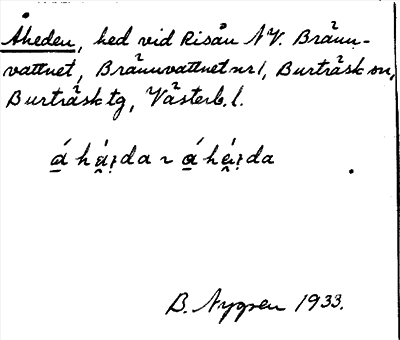 Åheden, hed vid Risån NV. Bränn-
vattnet, Brännvattnet nr 1, Burträsk sn,
Burträsk tg, Västerb. l.
B. Nygren 1933.